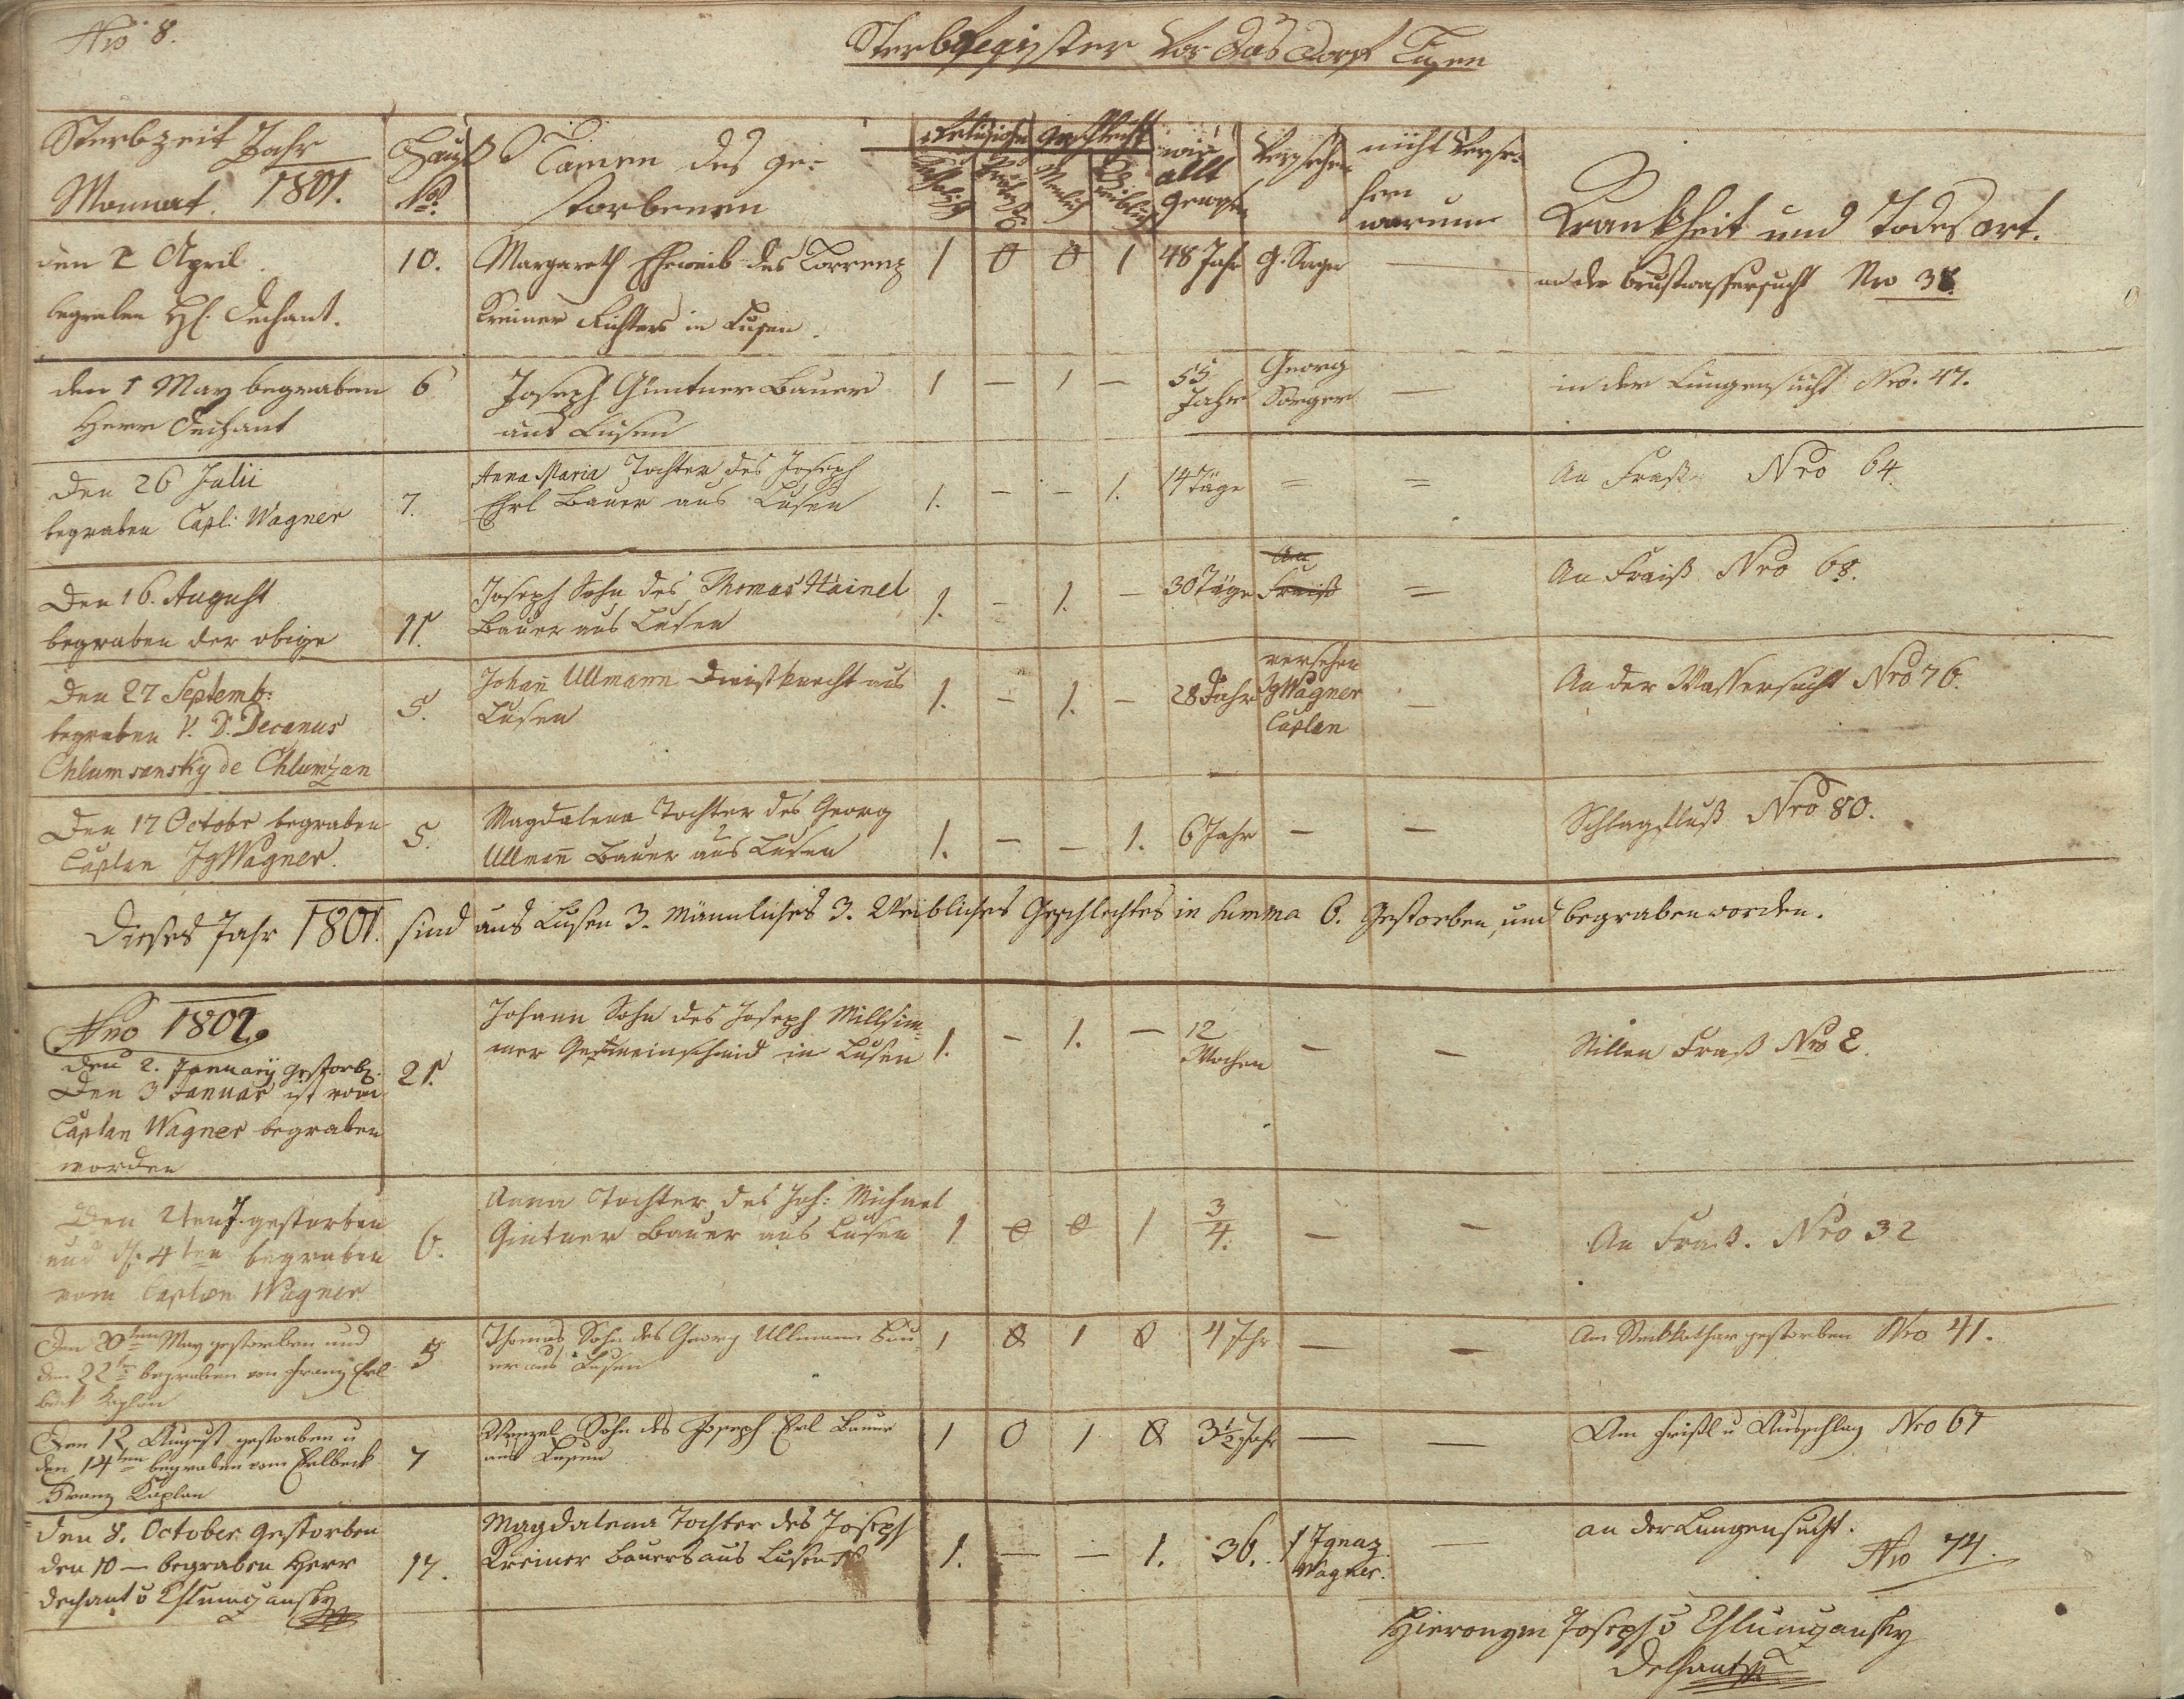 Nro 8.
Sterbregister Vor das Dorf Lusen
Sterbzeit Jahr
Monnat. 1801.
Hauß
Nro.
Namen des ge-
storbenen
Religion
Geschlecht
Männlich
Weiblich
wie
allt
gewesen
Versehen
nicht Verse-
hen
warum
Krankheit und Todesart.
den 2 April
begraben H. Dechant.
10.
Margareth Eheweib des Lorrenz
Kreiner Richters in Lusen.
1 0 0 1
48 Jahr
G. Sorger
—
an der Brustwassersucht Nro 38.
den 1 May begraben
Herr Dechant
6
Joseph Güntner Bauer
aus Lusen
1 — 1 —
55
Jahr
Georg
Sorger
—
in der Lungensucht Nro. 47.
Den 26 Julii
begraben Capl: Wagner
7.
Anna Maria Tochter des Joseph
Ehrl Bauer aus Lusen
1. - - 1.
14 Täge
=
=
An Fraiß Nro 64.
Den 16. August
begraben der obige
11.
Joseph Sohn des Thomas Häinel
Bauer aus Lusen
1. - 1. -
30 Täge
An
Fraiß
=
An Fraiß Nro 68.
Den 27 Septemb:
begraben V. D. Decanus
Chlumsansky de Chlumzan
5.
Johañ Ullmann Dienstknecht aus
Lusen
1. - 1. -
28 Jahr
versehen
Jg Wagner
Caplan
-
An der Wassersucht Nro 76.
Den 17 Octobr begraben
Caplan Jg Wagner.
5.
Magdalena Tochter des Georg
Ullmañ Bauer aus Lusen
1. - - 1.
6 Jahr
-
-
Schlagfluß Nro 80.
Dieses Jahr 1801. sind aus Lusen 3. Männliches 3. Weibliches Geschlechtes in Summa 6. gestorben, und begraben worden.
Ano 1802.
den 2. Januarij gestorb.
Den 3 Januar ist vom
Caplan Wagner begraben
worden
21.
Johann Sohn des Joseph Millsim-
mer Gemeinschmid in Lusen
1. - 1. -
12
Wochen
-
-
Stillen Fraß Nro 2.
Den 2ten gestorben
und d. 4ten begraben
vom Caplan Wagner
6.
Anna Tochter des Joh: Michael
Gintner Bauer aus Lusen
1 0 0 1
3/4.
-
-
An Fraß. Nro 32
Den 20ten May gestorben und
den 22ten begraben von Franz Erl-
beck Kaplan
5
Thomas Sohn des Georg Ullmann Bau-
er aus Lusen
1 0 1 0
4 Jhr
-
-
Am Steckkathar gestorben Nro 41.
Den 12 August gestorben u
den 14ten begraben vom Erlbeck
Franz Kaplan
7
Wenzel Sohn des Joseph Erl Bauer
aus Lusen
1 0 1 0
3 1/2 Jahr
—
—
Am Frißl u Ausschlag Nro 67
den 8. October gestorben
den 10 — begraben Herr
dechant v Chlumzansky
17.
Magdalena Tochter des Joseph
Kreiner Bauers aus Lusen
1. — — 1.
36.
Ignaz
Wagner.
—
an der Lungensucht.
Nro 74.
Hieronym Joseph v Chlumzansky
Dechant